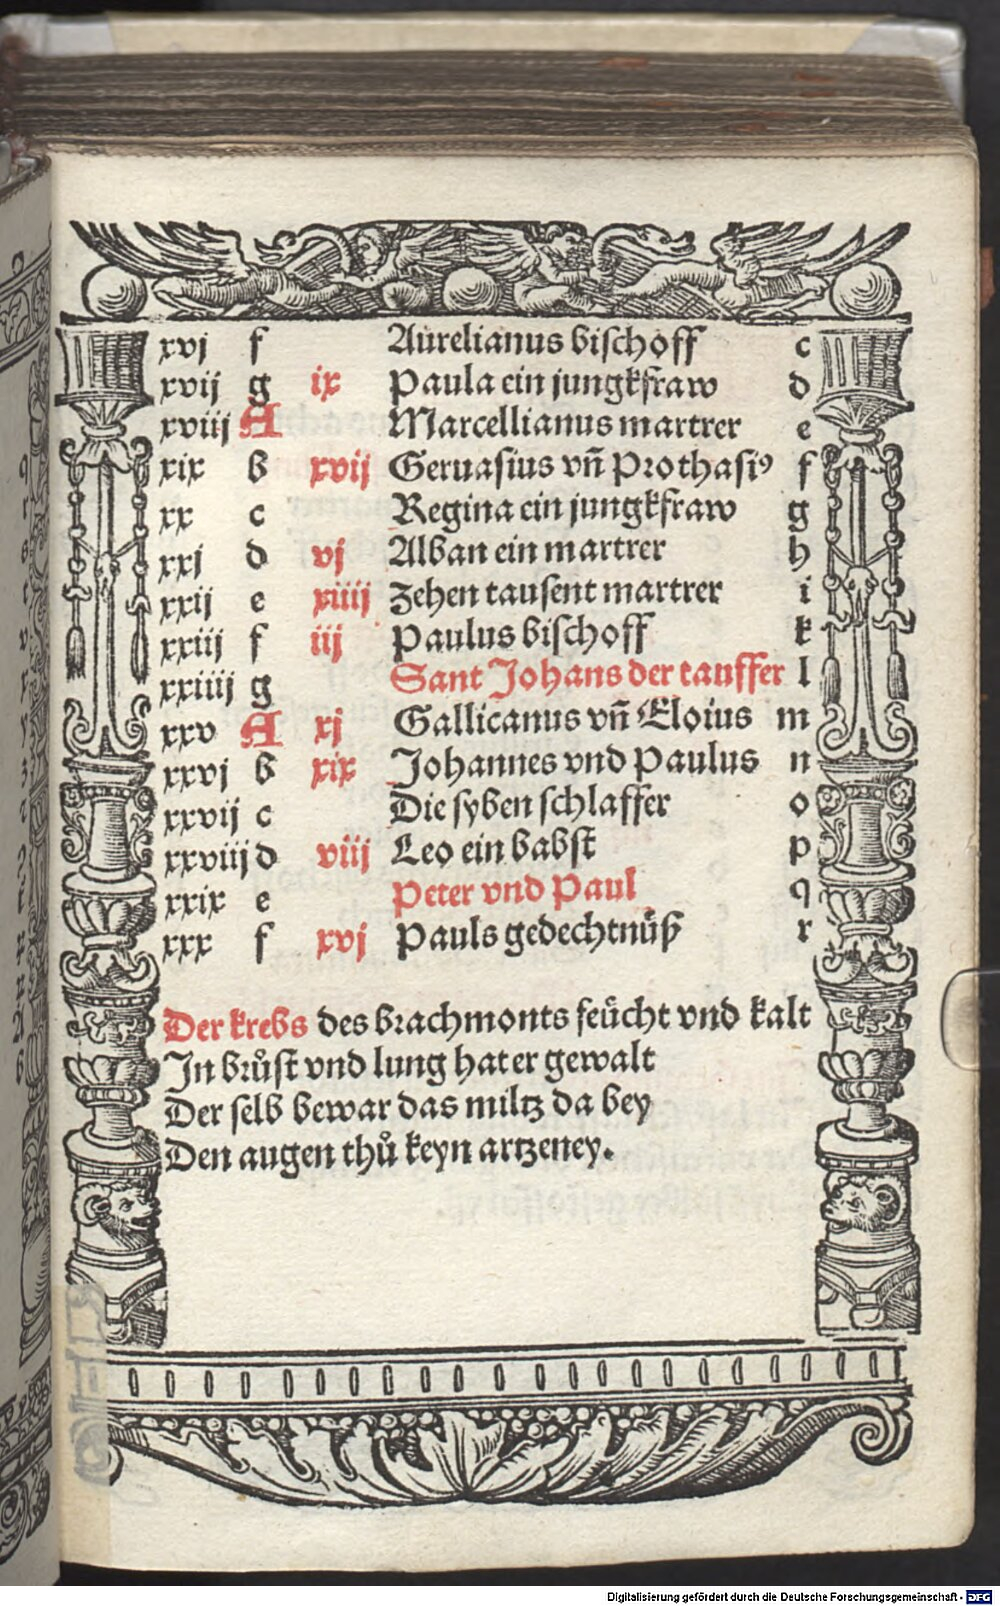 xvj f Aurelianus bischoff c
xvij g ix Paula ein jungkfraw d
xviij A Marcellianus martrer e
xix b xvij Geruasius vn̄ Prothasiꝰ f
xx c Regina ein jungkfraw g
xxj d vj Alban ein martrer h
xxij e xiiij Zehen tausent martrer i
xxiij f iij Paulus bischoff k
xxiiij g Sant Johans der tauffer l
xxv A xj Gallicanus vn̄ Eloius m
xxvj b xix Johannes vnd Paulus n
xxvij c Die syben schlaffer o
xxviij d viij Leo ein babst p
xxix e Peter vnd Paul q
xxx f xvj Pauls gedechtnüß r
Der krebs des brachmonts feücht vnd kalt
In brůst vnd lung hat er gewalt
Der selb bewar das miltz da bey
Den augen thů keyn artzeney.
Digitalisierung gefördert durch die Deutsche Forschungsgemeinschaft - DFG